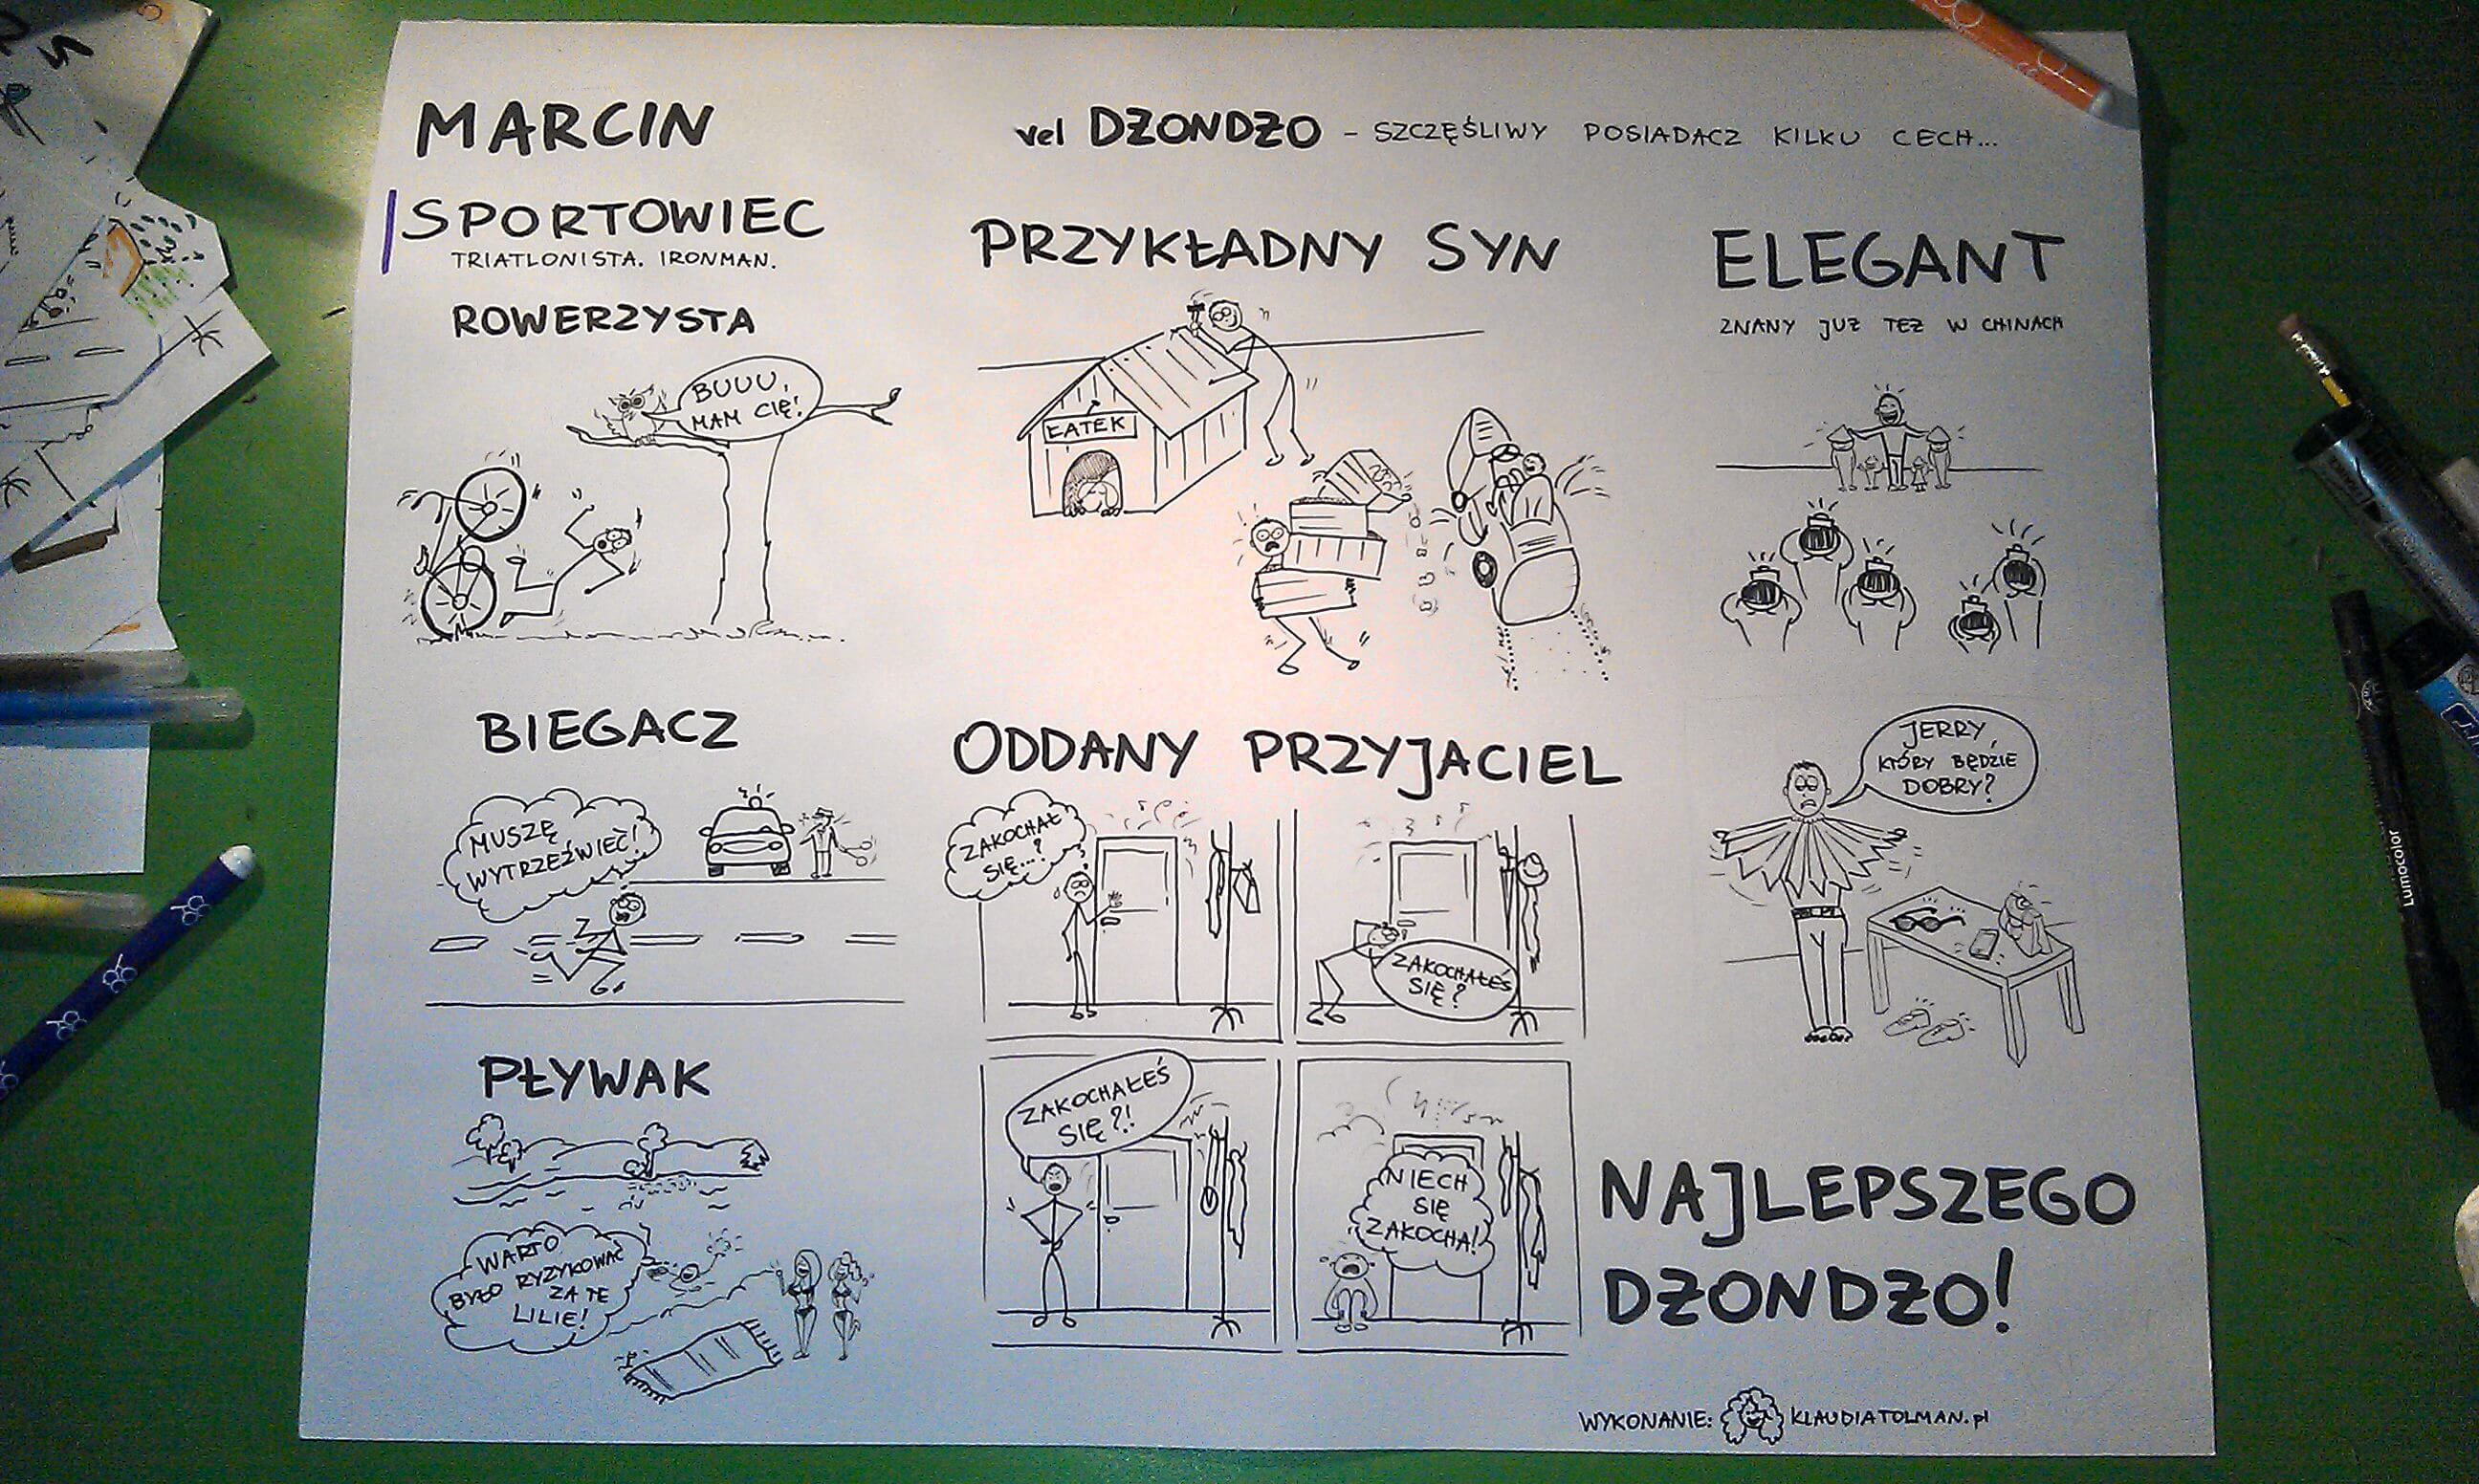 MARCIN
vel DŻONDŻO – SZCZĘŚLIWY POSIADACZ KILKU CECH...
SPORTOWIEC
TRIATLONISTA. IRONMAN.
ROWERZYSTA
BUUU,
MAM CIĘ!
BIEGACZ
MUSZĘ
WYTRZEŹWIEĆ!
PŁYWAK
WARTO
BYŁO RYZYKOWAĆ
ZA TE
LILIE!
PRZYKŁADNY SYN
ŁATEK
ODDANY PRZYJACIEL
ZAKOCHAŁ
SIĘ...?
ZAKOCHAŁEŚ
SIĘ?
ZAKOCHAŁEŚ
SIĘ?!
NIECH
SIĘ
ZAKOCHA!
ELEGANT
ZNANY JUŻ TEŻ W CHINACH
JERRY,
KTÓRY BĘDZIE
DOBRY?
NAJLEPSZEGO
DŻONDŻO!
WYKONANIE: KLAUDIATOLMAN.pl
Lumocolor